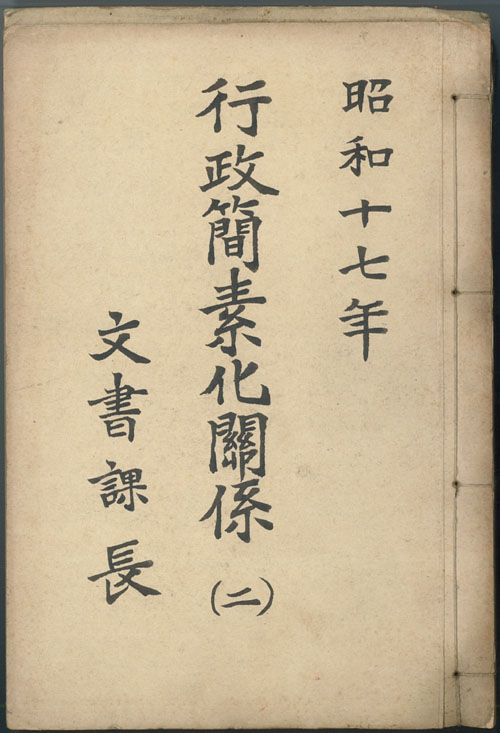 昭和十七年
行政簡素化關係(二)
文書課長